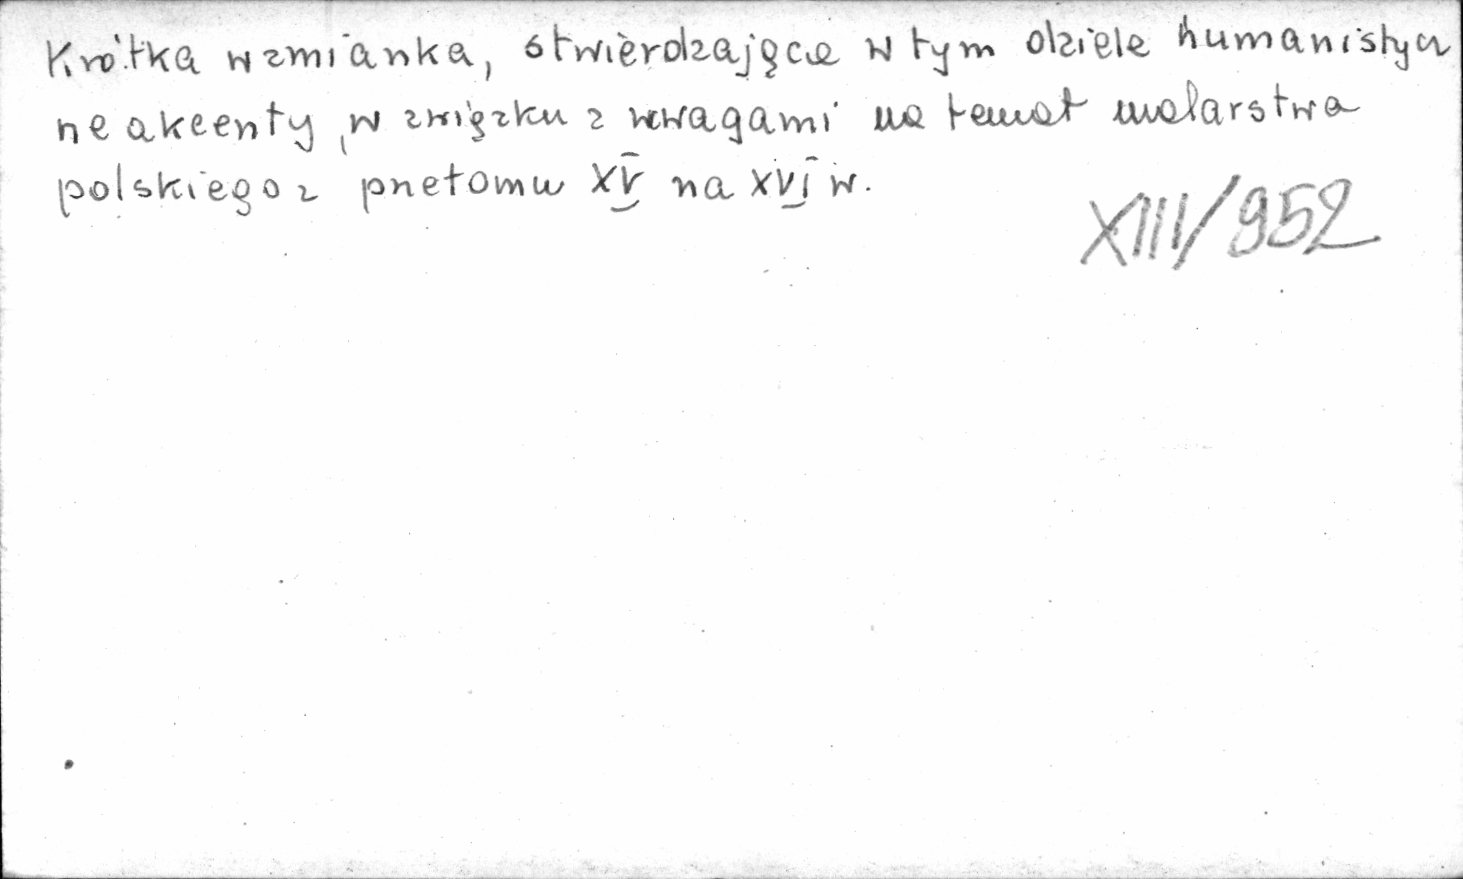 Krótka wzmianka, stwierdzające w tym dziele humanistycz
ne akcenty, w związku z uwagami na temat malarstwa
polskiego z przełomu XV na XVI w.
XIII/952